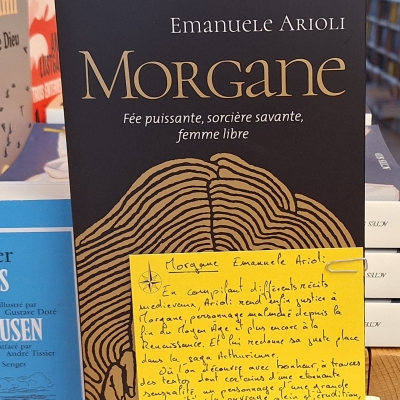 Emanuele Arioli
MORGANE
Fée puissante, sorcière savante,
femme libre
Morgane Emanuele Arioli
En compilant différents récits
médiévaux, Arioli rend enfin justice à
Morgane, personnage malmené depuis la
fin du Moyen Age et plus encore à la
Renaissance. Et lui redonne sa juste place
dans la saga Arthurienne.
Où l'on découvre avec bonheur, à travers
des textes dont certains d'une étonnante
sensualité, un personnage d'une grande
ouvrage plein d'érudition,
Dieu
er
S
illustré par
Gustave Doré
USEN
efacé par
André Tissier
Senges
ACTES